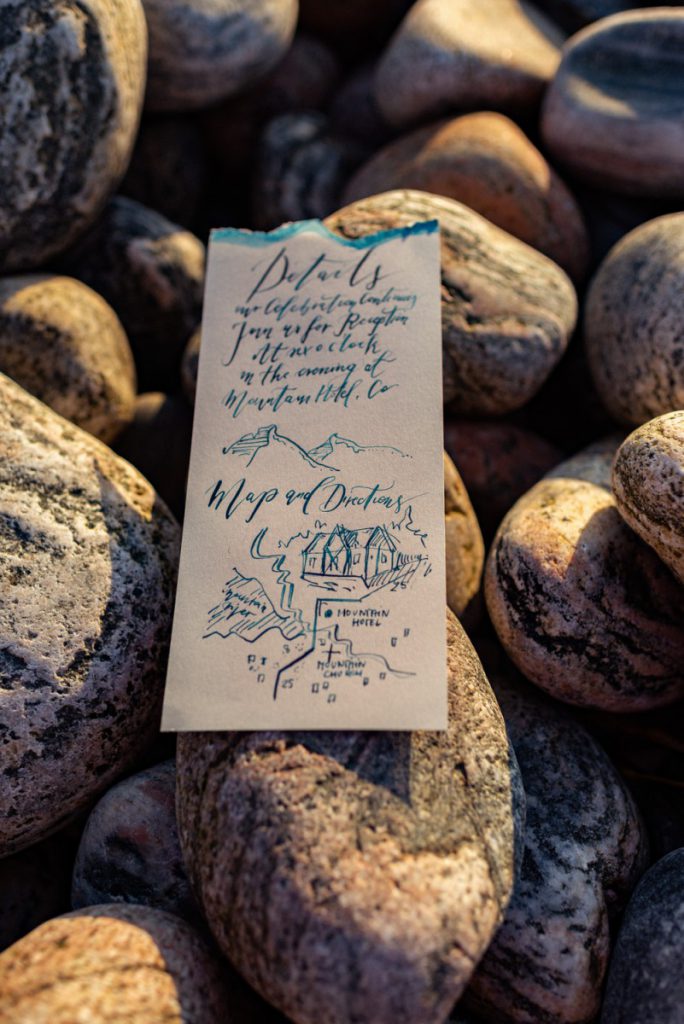 Details
our Celebration Continues
Join us for Reception
At six o clock
in the evening at
Mountain Hotel, Co
Map and Directions
25
Mountain
River
MOUNTAIN
HOTEL
MOUNTAIN
CHURCH
25